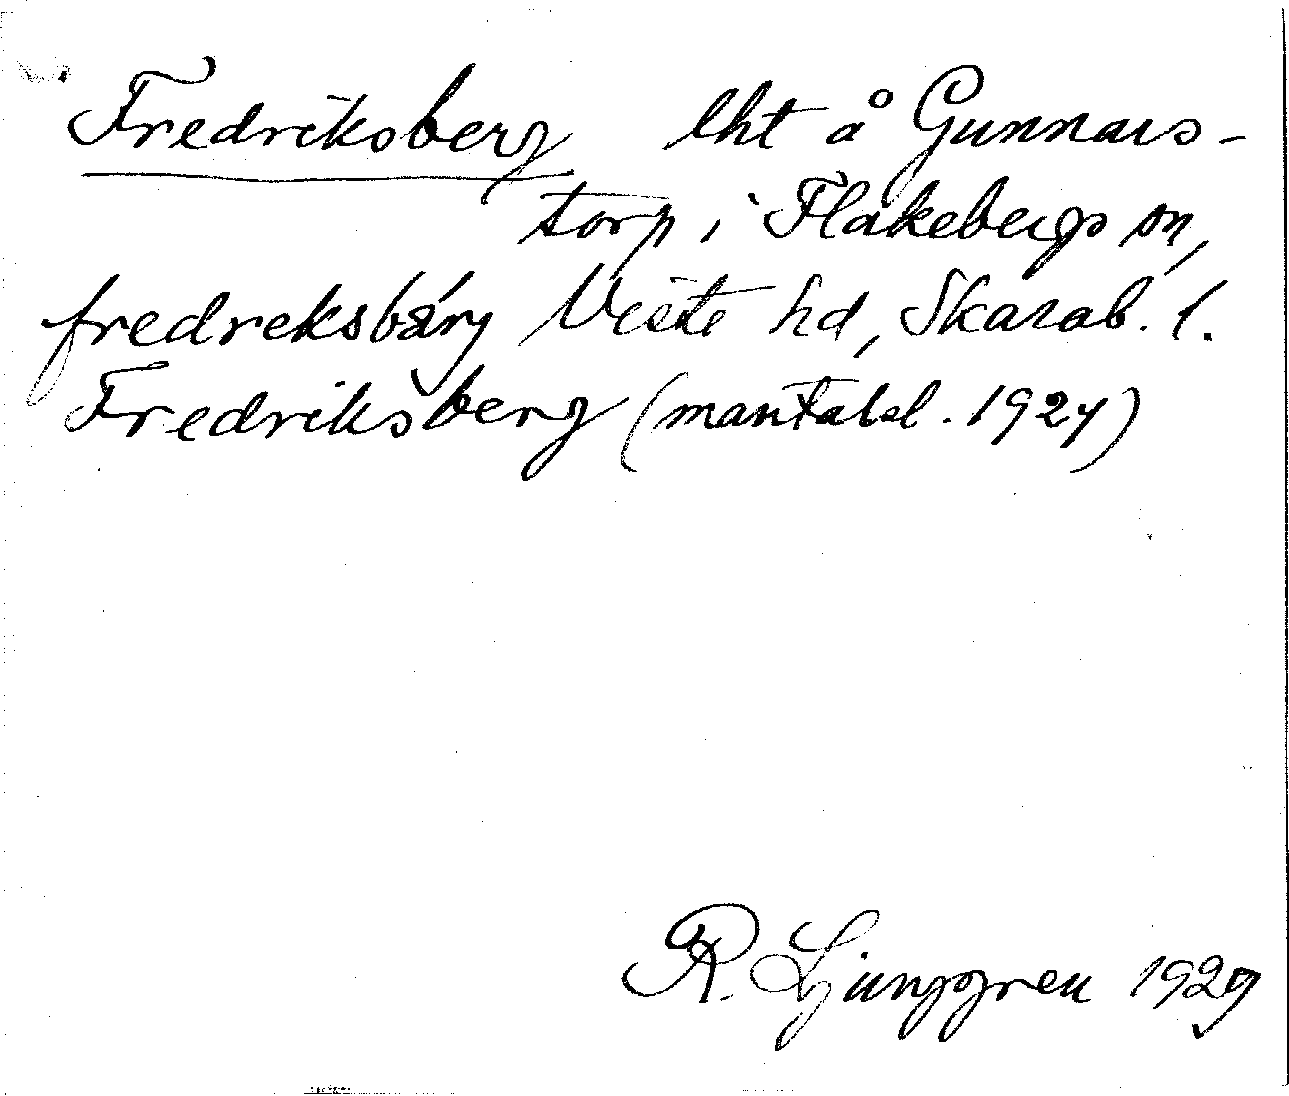 Fredriksberg lht å Gunnars-
torp i Flakebergs sn,
fredreksbärj Viste hd, Skarab. l.
Fredriksberg (mantalsl. 1927)
R. Ljunggren 1929